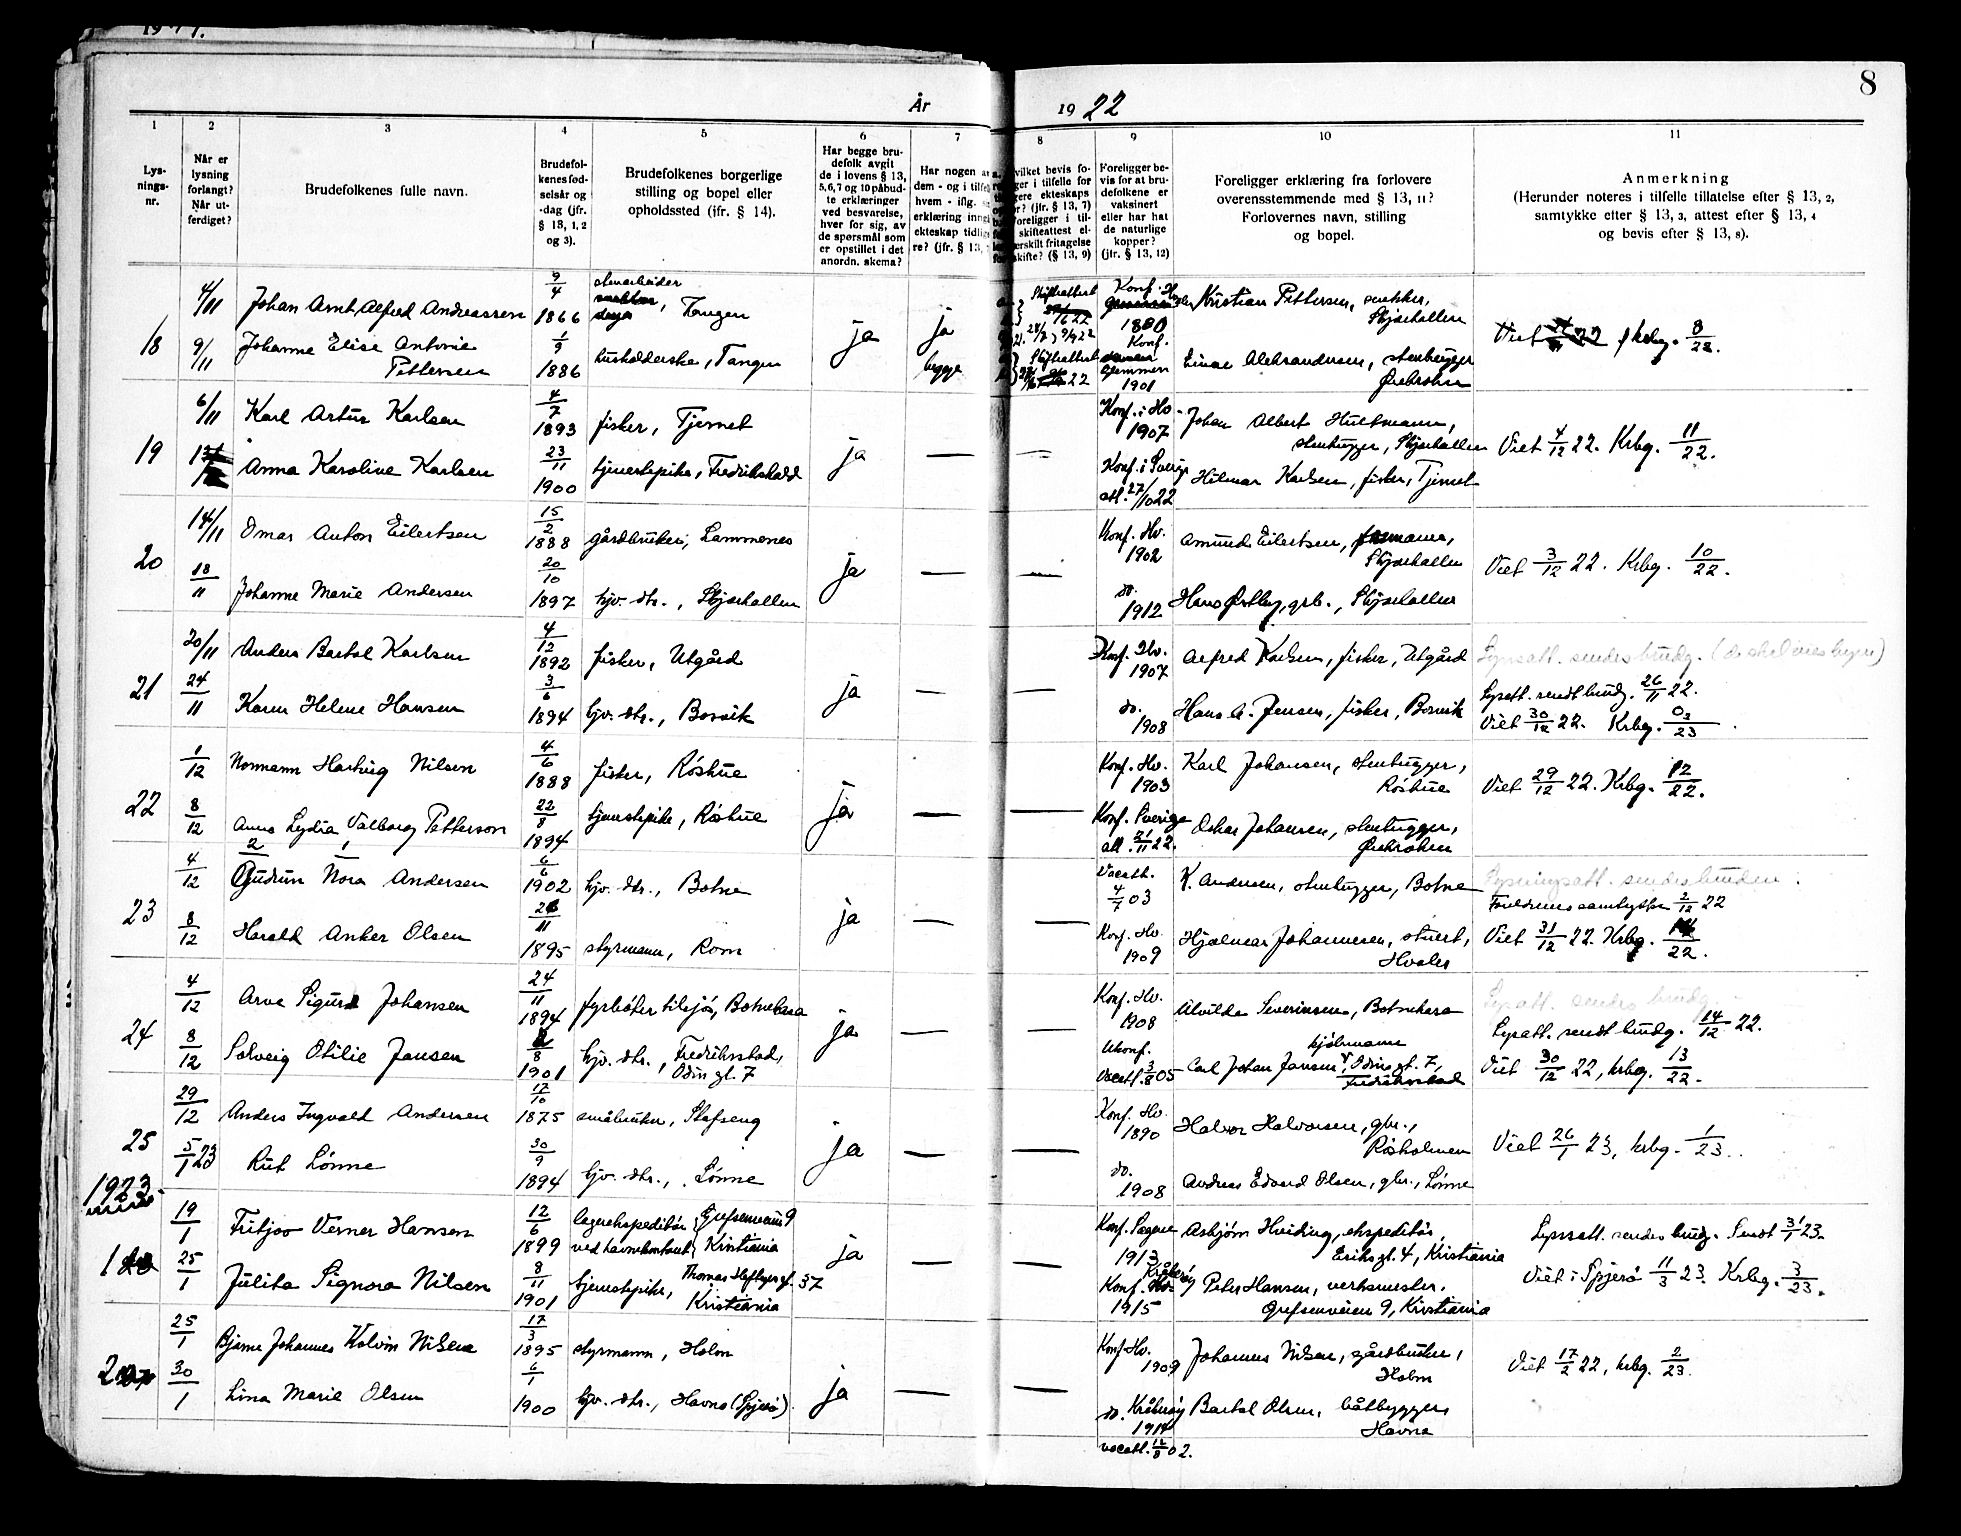 8
År 19 22
1
2
3
4
5
6
7
8
9
10
11
Lys-
nings-
nr.
Når er
lysning
forlangt?
Når ut-
ferdiget?
Brudefolkenes fulle navn.
Brudefol-
kenes fød-
selsår og
-dag (jfr.
§ 13, 1, 2
og 3).
Brudefolkenes borgerlige
stilling og bopel eller
opholdssted (jfr. § 14).
Har begge bru-
defolk avgit
de i lovens § 13,
5,6,7 og 10 påbud-
te erklæringer
ved besvarelse,
hver for sig, av
de spørsmål som
er opstillet i det
anordn. skema?
Har nogen a
dem - og i tilfe
hvem - iflg.
erklæring inng
ekteskap tidlig
re? (jfr. § 13,
vilket bevis fo-
ger i tilfelle for
gere ekteskaps
r? (jfr. § 13, 7)
foreligger i til-
skifteattest el-
erskilt fritagelse
skifte? (§ 13, 9)
Foreligger be-
vis for at bru-
defolkene er
vaksinert
eller har hat
de naturlige
kopper?
(jfr. § 13, 12)
Foreligger erklæring fra forlovere
overensstemmende med § 13, 11?
Forlovernes navn, stilling
og bopel.
Anmerkning
(Herunder noteres i tilfelle tillatelse efter § 13, 2,
samtykke efter § 13, 3, attest efter § 13, 4
og bevis efter § 13, 8).
18
4/11 Johan Arnt Alfred Andreassen 9/4 1866 stenarbeider, Tangen
ja ja
Konf. 1880 Kristian Pettersen, snekker,
Skjærhallen
9/11 Johanne Elise Antonie
Pettersen 1/9 1886 husholderske, Tangen
begge Skifteattest 22
Konf. 1901 Einar Aleksandersen, stenhugger
Ørebrohen
Viet krbg. 8/22.
19
6/11 Karl Artur Karlsen 4/7 1893 fisker, Tjernet
Konf. i Hv. 1907 Johan Albert Hultmann,
stenhugger, Skjærhallen
Anna Karoline Karlsen 23/11 1900 tjenestepike, Fredrikshald
ja — —
Konf. i Sverige att. 27/10 22 Hilmar Karlsen, fisker, Tjernet
Viet 4/12 22. Krbg. 11/22.
20
14/11 Omar Anton Eilertsen 15/2 1888 gårdbruker, Lammenes
Konf. Hv. 1902 Amund Eilertsen,
Skjærhallen
18/11 Johanne Marie Andersen 20/10 1897 hjv. dtr., Skjærhallen
ja — —
do. 1912 Hans Østby, grb., Skjærhallen
Viet 3/12 22. Krbg. 10/22.
21
20/11 Anders Bartol Karlsen 4/12 1892 fisker, Utgård
Konf. Hv. 1907 Alfred Karlsen, fisker, Utgård
Lysatt. sendes brudg.
24/11 Karen Helene Hansen 3/6 1894 hjv. dtr., Botvik
ja — —
do. 1908 Hans A. Jensen, fisker, Botvik
Lysatt. sendt brudg. 26/11 22.
Viet 30/12 22. Krbg. 03/23.
22
1/12 Normann Hartvig Nilsen 4/6 1888 fisker, Røshue
Konf. Hv. 1903 Karl Johansen, stenhugger,
Røshue
8/12 Anna Lydia Valborg Petterson 22/8 1894 tjenestepike, Røshue
ja — —
Konf. Sverige att. 21/11 22. Oskar Johansen, stenhugger,
Ørebrohen
Viet 29/12 22. Krbg. 12/22.
23
4/12 Gudrun Nora Andersen 6/6 1902 hjv. dtr., Botne
Vacatt. 4/7 03 K. Andersen, stenhugger, Botne
Lysningsatt. sendes bruden.
Foreldrenes samtykke 2/12 22
8/12 Harald Anker Olsen 11 1895 styrmann, Rom
ja — —
Konf. Hv. 1909 Hjalmar Johannesen, stuert,
Hvaler
Viet 31/12 22. Krbg. 14/22.
24
4/12 Arve Sigurd Johansen 24/11 1894 fyrbøter tilsjøs, Botnekasa
Konf. Hv. 1908 Alvilda Severinsen, Botnekasa
Lysatt. sendes brudg.
Lysatt. sendt brudg. 14/12 22.
8/12 Solveig Otilie Jansen 8 1901 hjv. dtr., Fredrikstad,
Odin gt. 7
ja — —
Ukonf. Vacatt. 3/8 05 Carl Johan Jansen, kjølmann, Odins gt. 7,
Fredrikstad
Viet 30/12 22, krbg. 13/22.
25
29/12 Anders Ingvald Andersen 17/10 1875 småbruker, Stafseng
Konf. Hv. 1890 Halvor Halvorsen, gbr.,
Røsholmen
5/1 23 Rut Lønne 30/9 1894 hjv. dtr., Lønne
ja — —
do. 1908 Andreas Edvard Olsen, gbr., Lønne
Viet 26/1 23, krbg. 1/23.
1923
1
19/1 Fritjov Verner Hansen 12/6 1899 lagerekspeditør
ved havnekontoret Grefsenveien 9
Kristiania
Konf. Sagene 1913 Asbjørn Hviding, ekspeditør,
Eriks gt. 4, Kristiania
Lysatt. sendes brudg. Sendt 31/1 23.
25/1 Julita Signora Nilsen 8/11 1901 tjenestepike, Thomas Heftyes gt. 37
Kristiania
ja — —
Konf. Kråkerøy 1915 Peter Hansen, verksmester,
Grefsenveien 9, Kristiania
Viet i Spjerø 11/3 23. Krbg. 3/23.
2
25/1 Bjarne Johannes Kolvin Nilsen 17/3 1895 styrmann, Holm
Konf. Hv. 1909 Johannes Nilsen, gårdbruker,
Holm
30/1 Lina Marie Olsen 6/1 1900 hjv. dtr., Havna (Spjerø)
ja — —
do. Kråkerøy 1914 Bartol Olsen, båtbygger,
Havna
vacatt. 12/8 02.
Viet 17/2 22, krbg. 2/23.